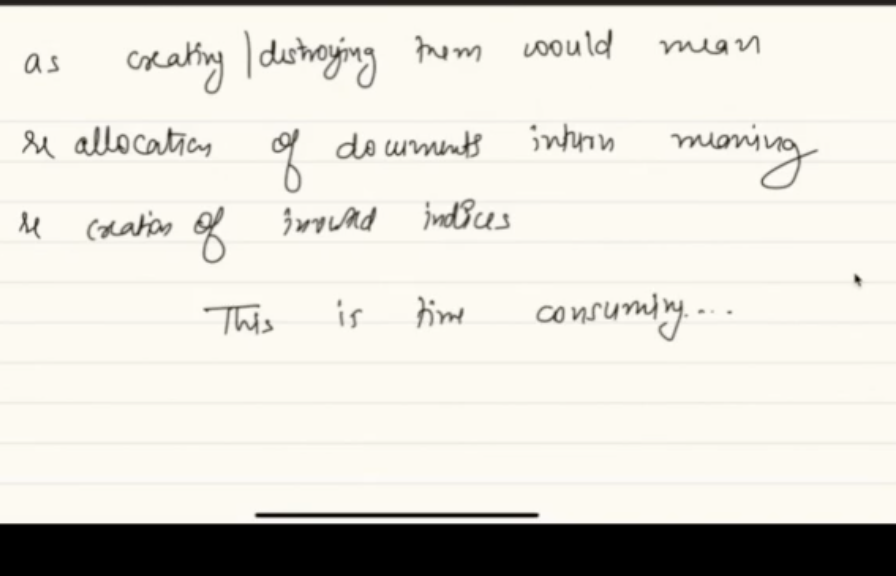 as creating | distroying them would mean
re allocation of documents inturn meaning
re creation of inverted indices
This is time consuming....